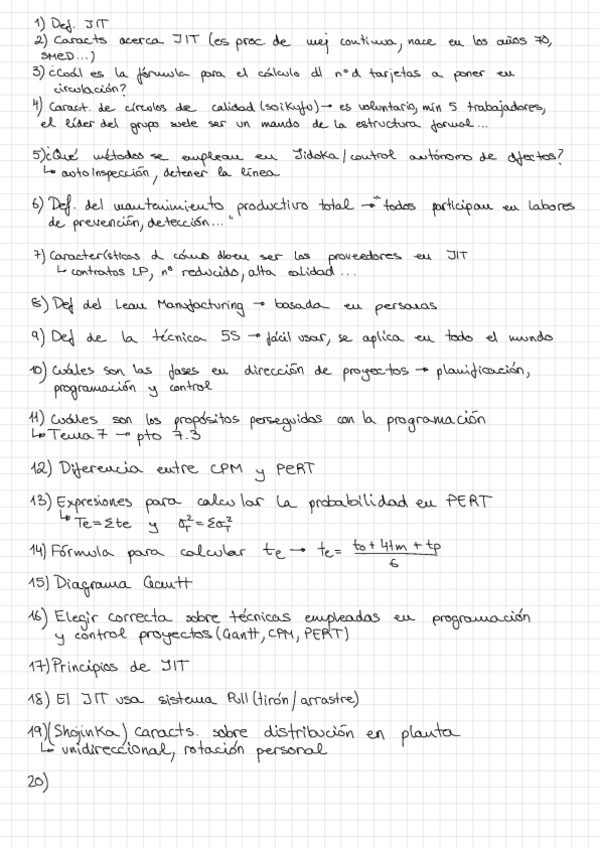 1) Def. JIT
2) Caracts acerca JIT (es proc. de mej continua, nace en los años 70,
SMED...)
3) ¿Cuál es la fórmula para el cálculo dl nºd tarjetas a poner en
circulación?
4) Caract. de círculos de calidad (soikufu) → es voluntario, mín 5 trabajadores,
el líder del grupo suele ser un mando de la estructura formal...
5) ¿Qué métodos se emplean en Jidoka/control autónomo de defectos?
↳ autoInspección, detener la línea
6) Def. del mantenimiento productivo total → "todos participan en labores
de prevención, detección..."
7) Características d cómo dben ser los proveedores en JIT
↳ contratos LP, nº reducido, alta calidad...
8) Def del Lean Manufacturing → basada en personas
9) Def de la técnica 5S → fácil usar, se aplica en todo el mundo
10) Cuáles son las fases en dirección de proyectos → planificación,
programación y control
11) Cuáles son los propósitos perseguidos con la programación
↳ Tema 7 → pto 7.3
12) Diferencia entre CPM y PERT
13) Expresiones para calcular la probabilidad en PERT
↳ Te = Σte y σ²T = Σσ²T
14) Fórmula para calcular te → te = to + 4tm + tp / 6
15) Diagrama Gantt
16) Elegir correcta sobre técnicas empleadas en programación
y control proyectos (Gantt, CPM, PERT)
17) Principios de JIT
18) El JIT usa sistema Pull (tirón/arrastre)
19) (Shojinka) caracts. sobre distribución en planta
↳ unidireccional, rotación personal
20)